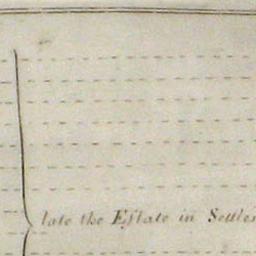 late the Eſtate in